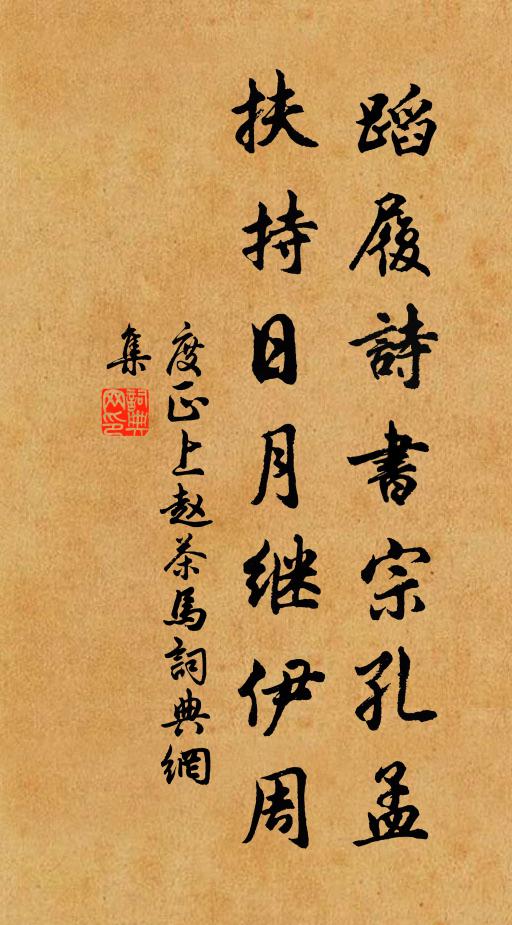 蹈履詩書宗孔孟
扶持日月继伊周
度正上赵茶馬詞典網
集
詞典
网印